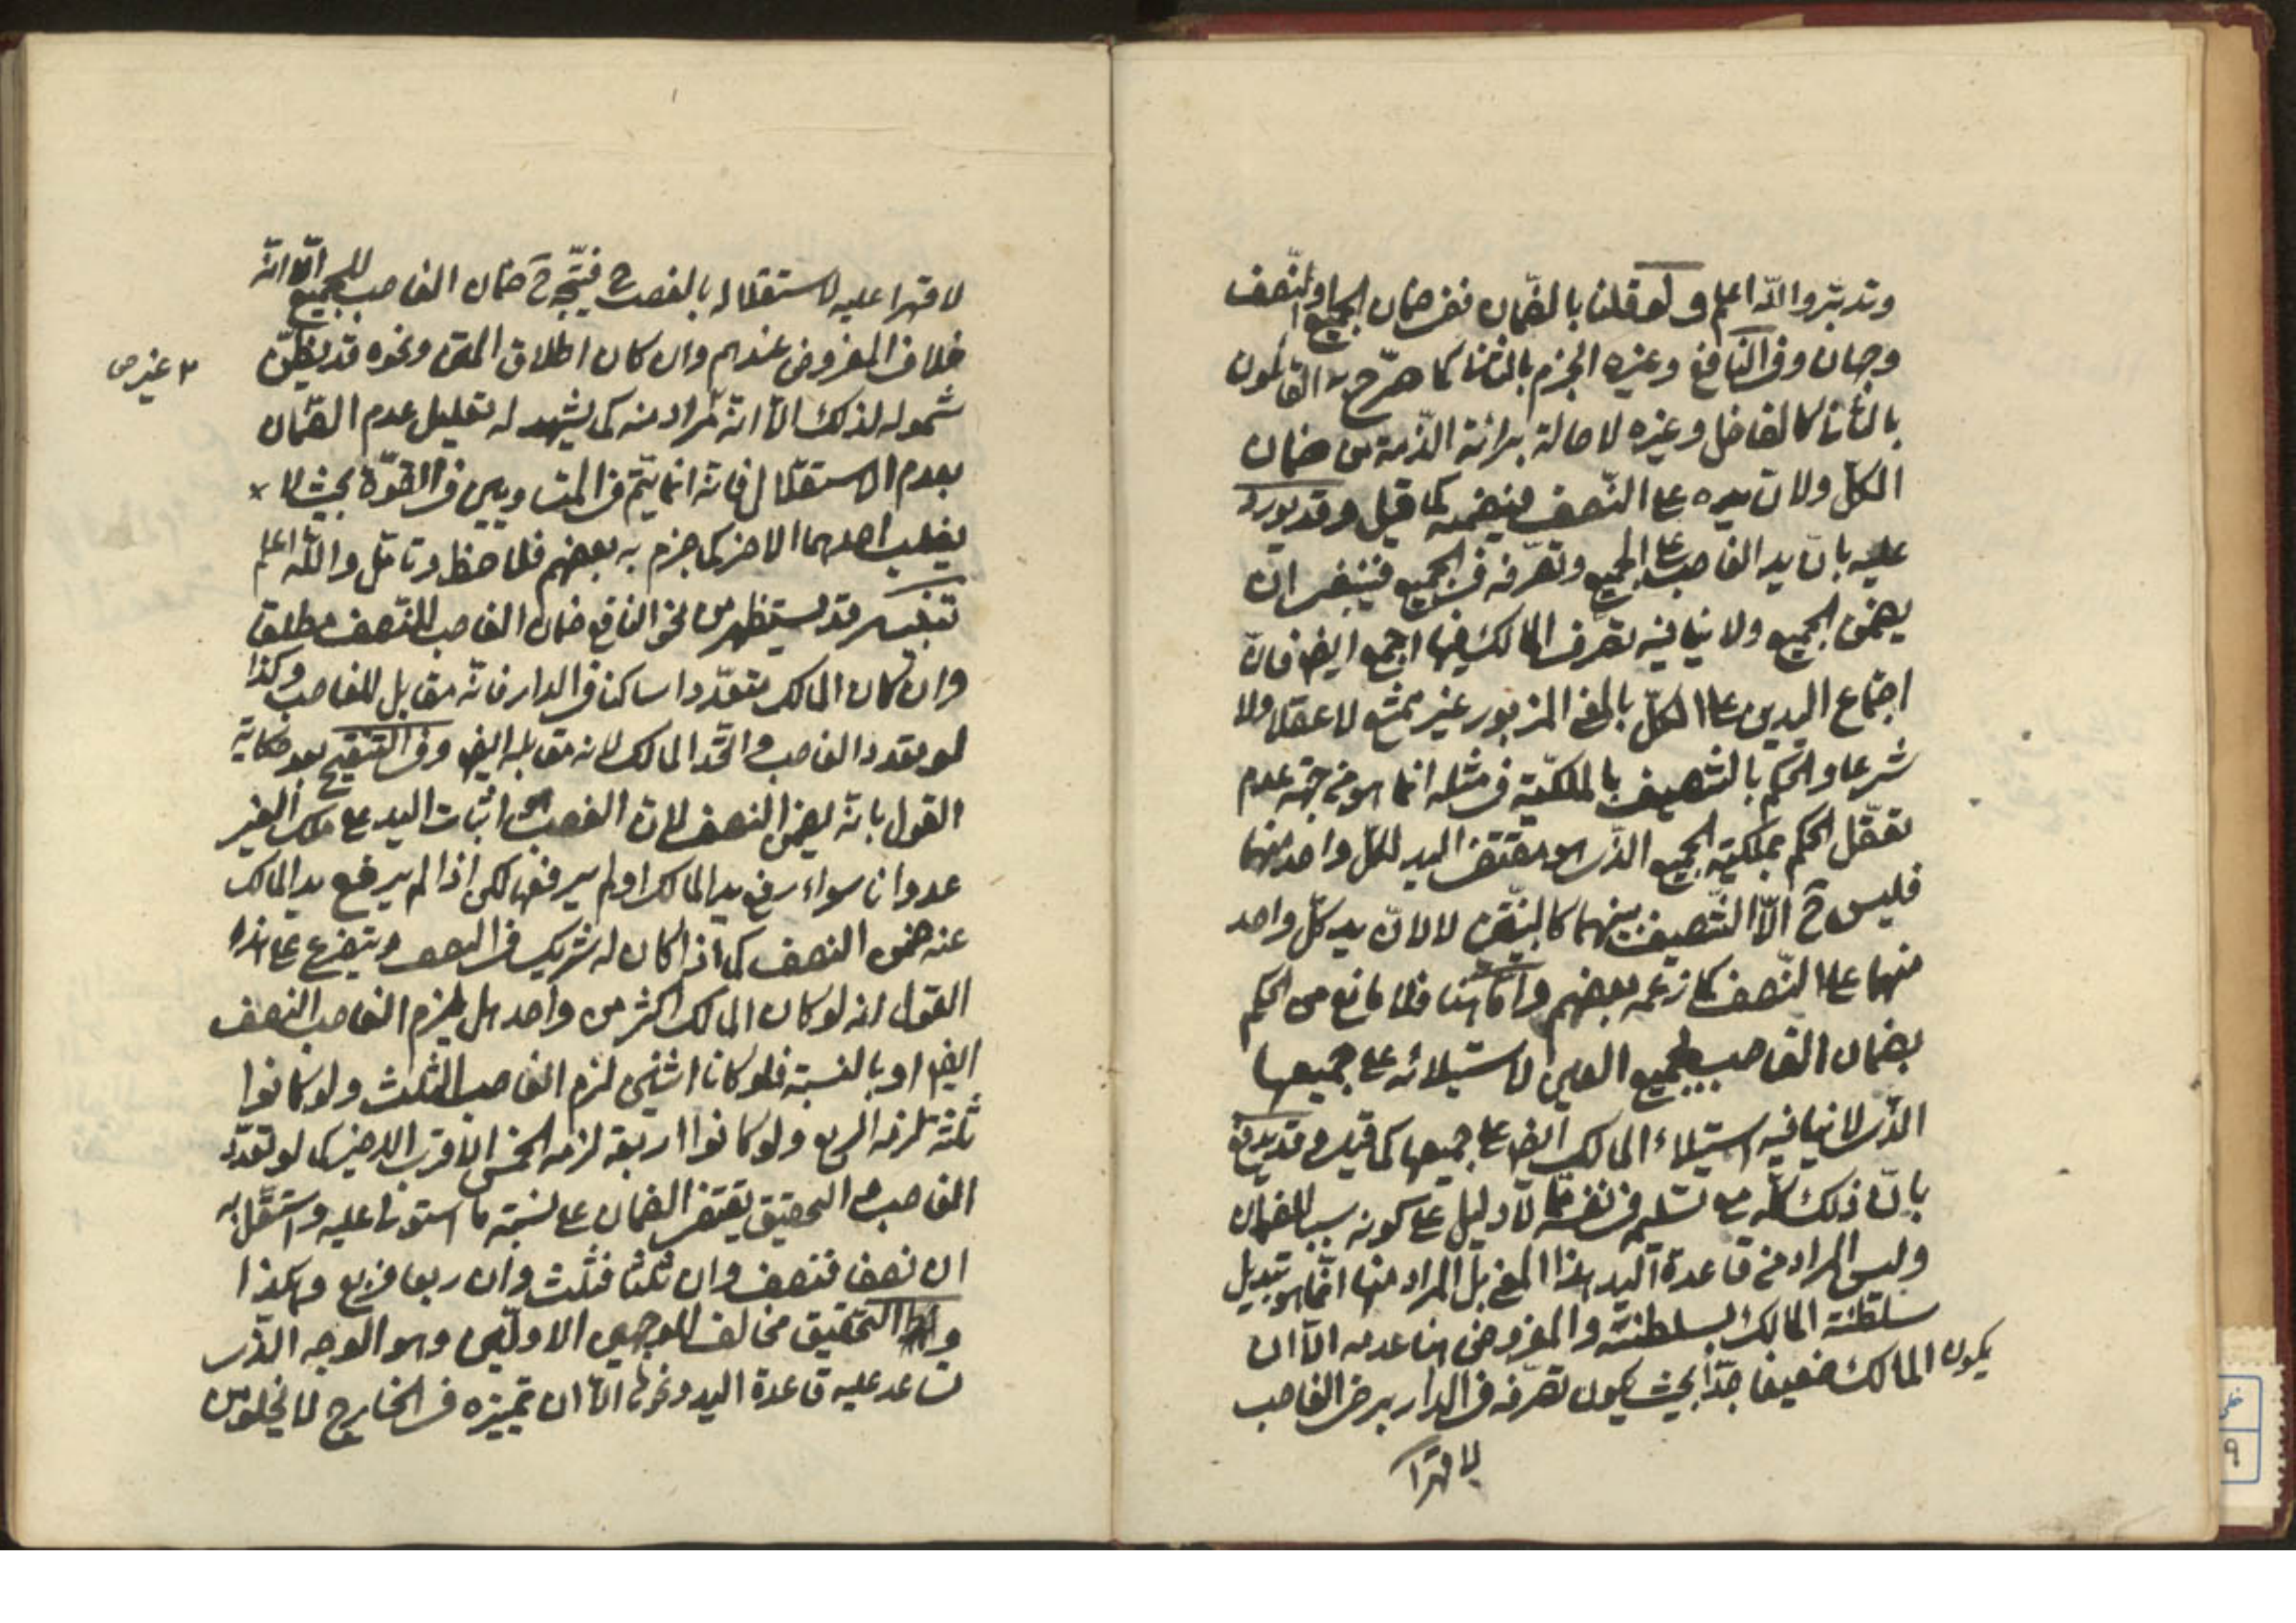 وتدبّر والله اعلم ولو قلنا بالضّمان ففى ضمان الجميع او النّصف
وجهان وفى النافع وغيره الجزم بالثانى كما صرّح به القائلون
بالثانى كالفاضل وغيره لاصالة برائة الذّمة من ضمان
الكلّ ولان يده على النّصف فيضمنه كما قيل وقد يورد
عليه بانّ يد الغاصب على الجميع وتصرّفه فى الجميع فينبغى ان
يضمن الجميع ولا ينافيه تصرف المالك فيها اجمع ايضا فانّ
اجتماع اليدين على الكلّ بالمعنى المزبور غير ممتنع لا عقلا ولا
شرعا والحكم بالتنصيف بالملكيّة فى مثله انما هو من جهة عدم
تعقّل الحكم بملكية الجميع الذى هو مقتضى اليد لكلّ واحد منهما
فليس ح الّا التّنصيف بينهما كالبيّنتين لا لانّ يد كلّ واحد
منهما على النّصف كما زعمه بعضهم وامّا هنا فلا مانع من الحكم
بضمان الغاصب لجميع العين لاستيلائه على جميعها
الذى لا ينافيه استيلاء المالك ايضا على جميعها كما قيل وقد يدفع
بانّ ذلك كلّه مع تسليمه فى نفسه ممّا لا دليل على كونه سببا للضمان
وليس المراد من قاعدة اليد هذا المعنى بل المراد منها انّما هو تبديل
سلطنة المالك بسلطنته والمفروض هنا عدمه الّا ان
يكون المالك ضعيفا جدّا بحيث يكون تصرّفه فى الدار برضى الغاصب
لا قهرا
لا قهرا عليه لاستقلاله بالغصب ح فيتّجه ح ضمان الغاصب للجميع الّا انّه
خلاف المفروض عندهم وان كان اطلاق المتن ونحوه قد يظنّ
٢ غير ص
شموله لذلك الّا انّه مراد منه كما يشهد له تعليل عدم الضّمان
بعدم الاستقلال فانّه انما يتّم فى المتساويين فى القوّة بحيث لا
يغلب احدهما الاخر كما جزم به بعضهم فلاحظ وتامّل والله اعلم
تنبيه قد يستظهر من نحو النافع ضمان الغاصب للنّصف مطلقا
وان كان المالك متعدّدا ساكنا فى الدار فانّه مقابل للغاصب وكذا
لو تعدد الغاصب واتّحد المالك لانه مقابله ايضا وفى التنقيح بعد حكاية
القول بانّه يضمن النصف لانّ الغصب هو اثبات اليد على ملك الغير
عدوانا سواء رفع يد المالك او لم يرفعها لكن اذا لم يرفع يد المالك
عنه ضمن النصف كما اذا كان له شريك فى النصف ويتفرع على هذا
القول انه لو كان المالك اكثر من واحد هل يلزم الغاصب النصف
ايضا او بالنسبة فلو كانا اثنين لزم الغاصب الثلث ولو كانوا
ثلثة لزمه الربع ولو كانوا اربعة لزمه الخمس الاقرب الاخير كما لو تعدّد
الغاصب والتحقيق يقتضى الضمان على نسبة ما استولى عليه واستقلّ به
ان نصفا فنصف وان ثلثا فثلث وان ربعا فربع وهكذا
والتحقيق مخالف للوجهين الاوليّن وهو الوجه الذى
تساعد عليه قاعدة اليد ونحوها الّا ان تمييزه فى الخارج لا يخلو من